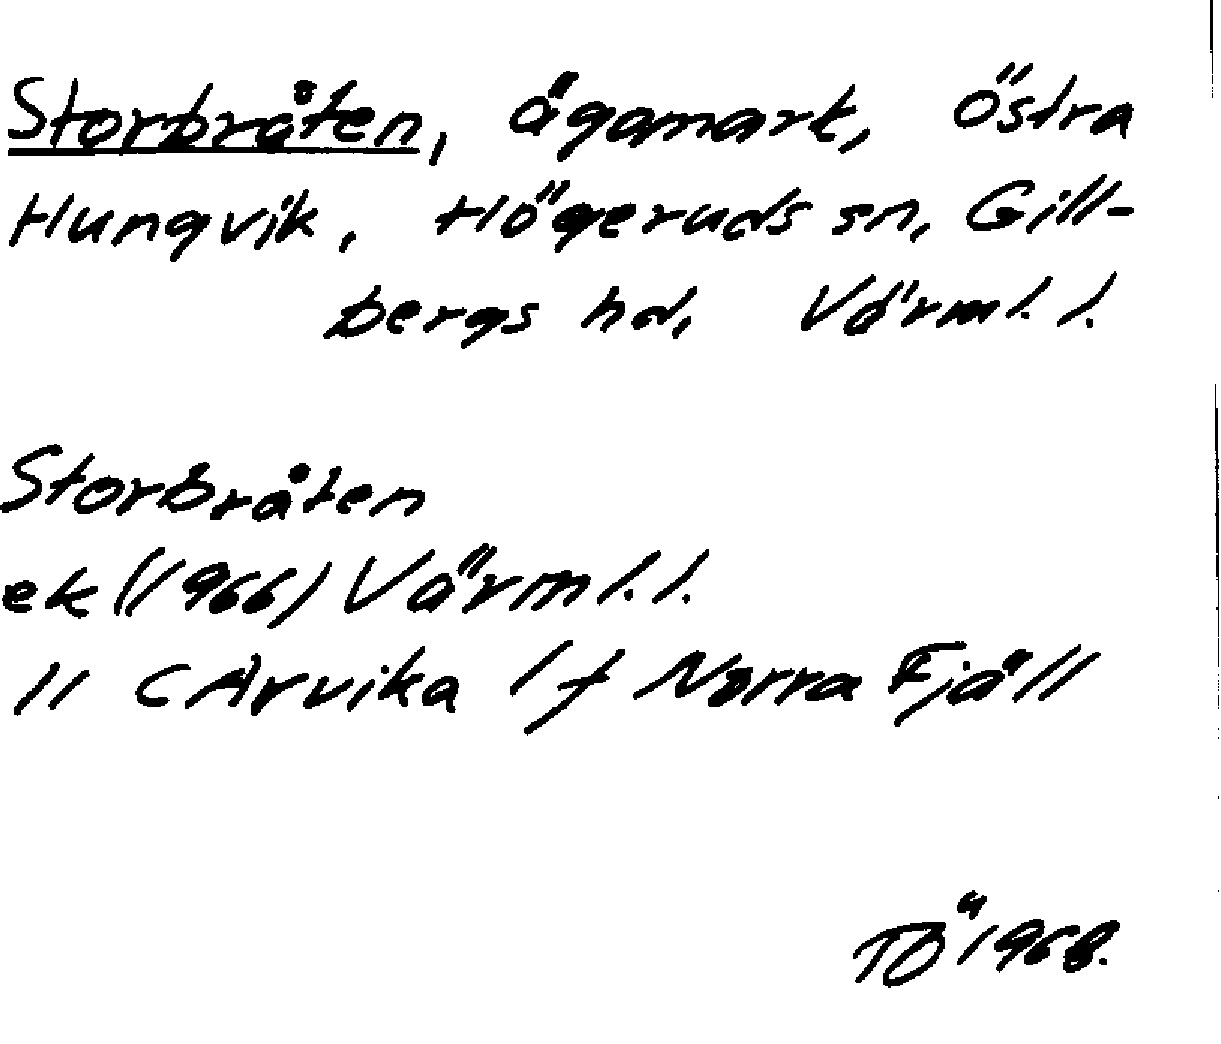 Storbråten, ägomark, Östra
Hungvik, Högeruds sn, Gill-
bergs hd, Värml. l.
Storbråten
ek (1966) Värml. l.
11 C Arvika 1 f Norra Fjäll
TÖ 1968.